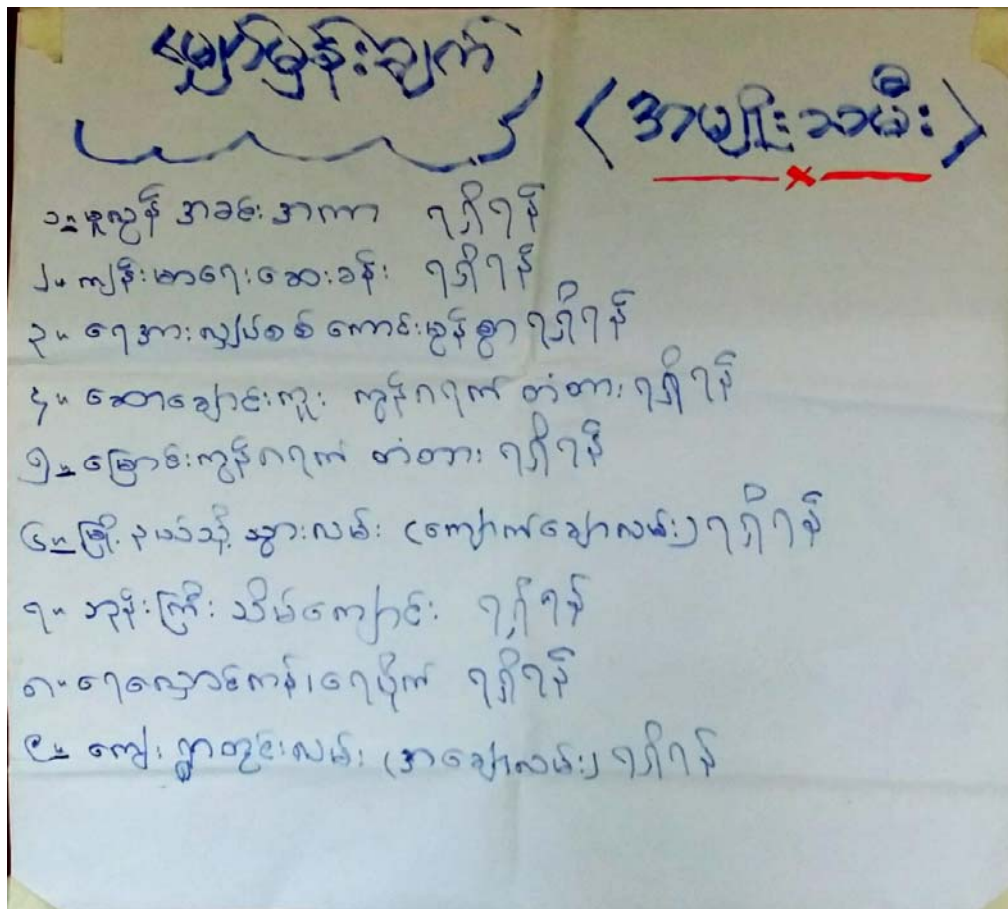 မျှော်မှန်းချက်
(အမျိုးသမီး)
၁။ မူလွန် အခင်း အကာ ရရှိရန်
၂။ ကျန်းမာရေးဆေးခန်း ရရှိရန်
၃။ ရေအားလျှပ်စစ် ကောင်းမွန်စွာ ရရှိရန်
၄။ ဆောချောင်းကူး ကွန်ကရက် တံတား ရရှိရန်
၅။ မြောင်းကွန်ကရက် တံတား ရရှိရန်
၆။ မြို့နယ်သို့ သွားလမ်း (ကျောက်ချောလမ်း) ရရှိရန်
၇။ ဘုန်းကြီး သိမ်ကျောင်း ရရှိရန်
၈။ ရေလှောင်ကန်၊ ရေပိုက် ရရှိရန်
၉။ ကျေးရွာတွင်းလမ်း (အချောလမ်း) ရရှိရန်